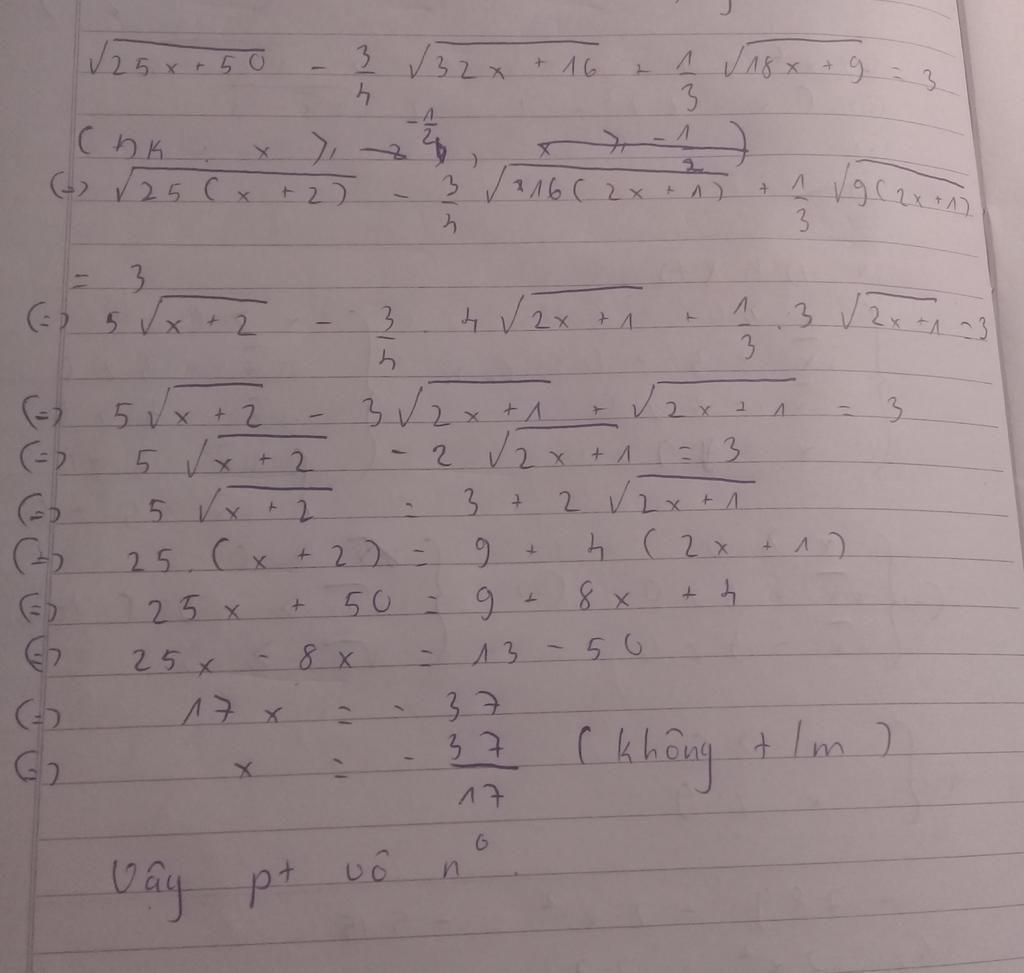 √(25x + 50) - 3/4 √(32x + 16) + 1/3 √(18x + 9) = 3
(ĐK x ≥ -1/2)
(=) √(25(x + 2)) - 3/4 √(16(2x + 1)) + 1/3 √(9(2x+1))
= 3
(=) 5√(x + 2) - 3/4 . 4√(2x + 1) + 1/3 . 3√(2x+1) = 3
(=) 5√(x + 2) - 3√(2x + 1) + √(2x + 1) = 3
(=) 5√(x + 2) - 2√(2x + 1) = 3
(=) 5√(x + 2) = 3 + 2√(2x + 1)
(=) 25.(x + 2) = 9 + 4(2x + 1)
(=) 25x + 50 = 9 + 8x + 4
(=) 25x - 8x = 13 - 50
(=) 17x = - 37
(=) x = - 37/17 (không t/m)
Vậy pt vô n⁰.